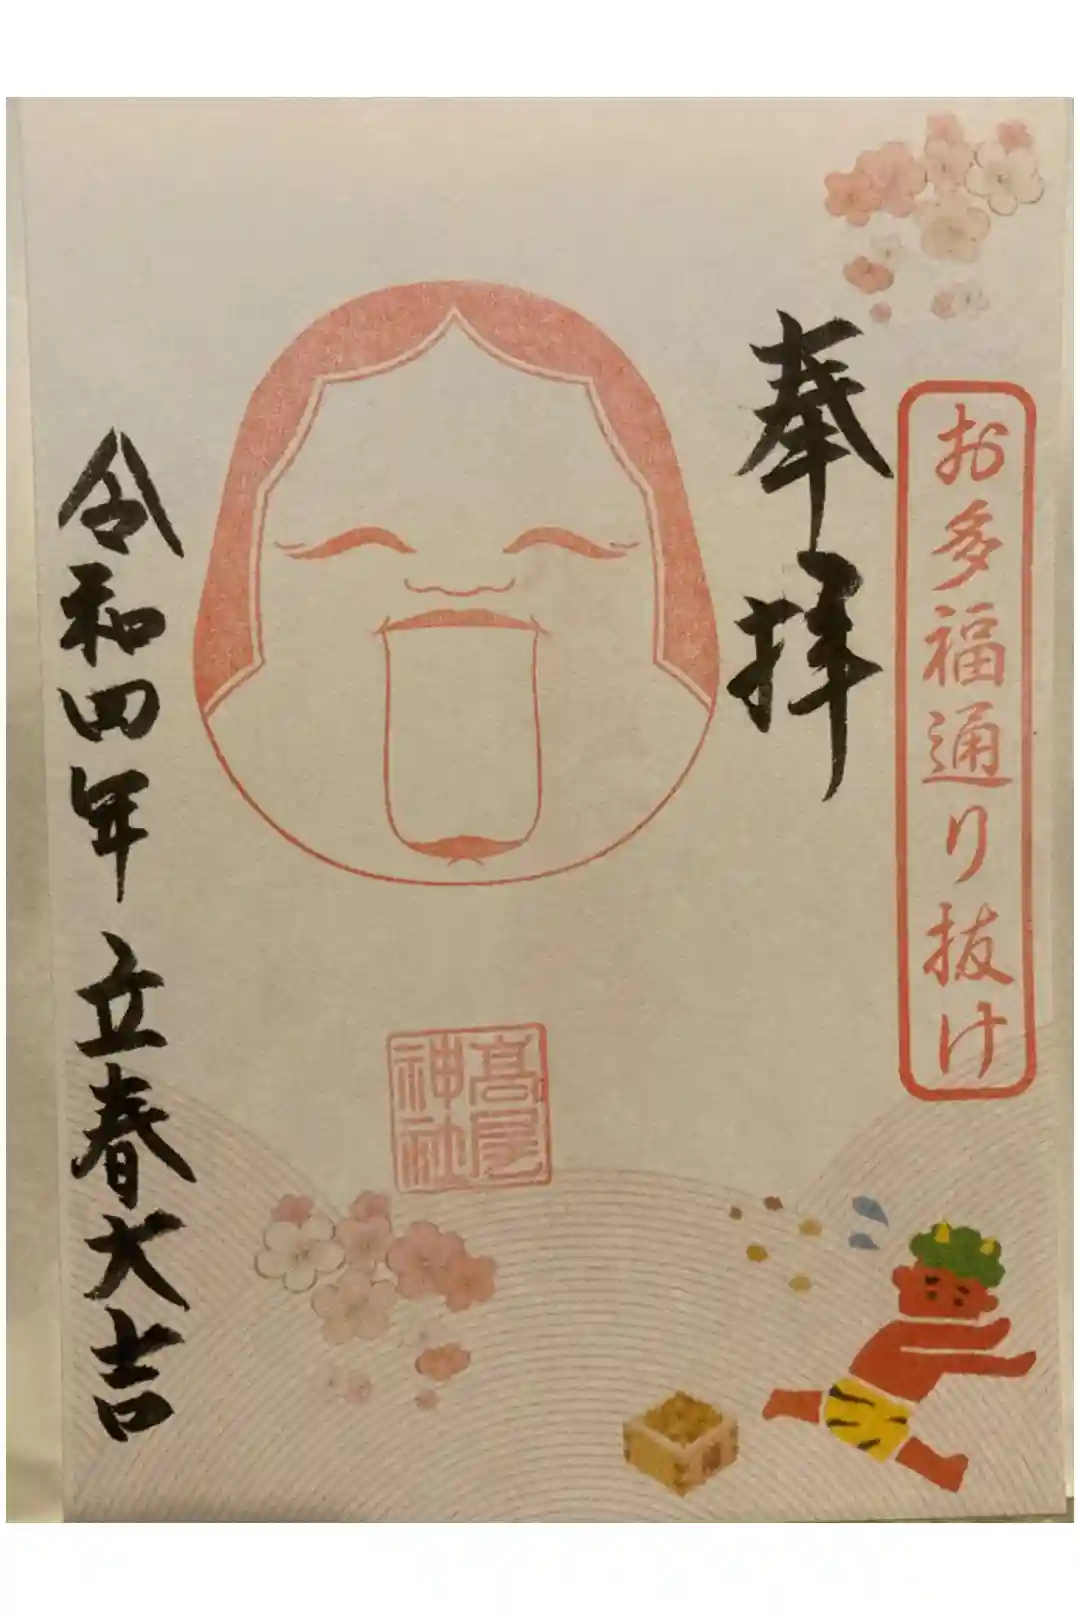 お多福通り抜け
奉拝
髙尾
神社
令和四年 立春大吉